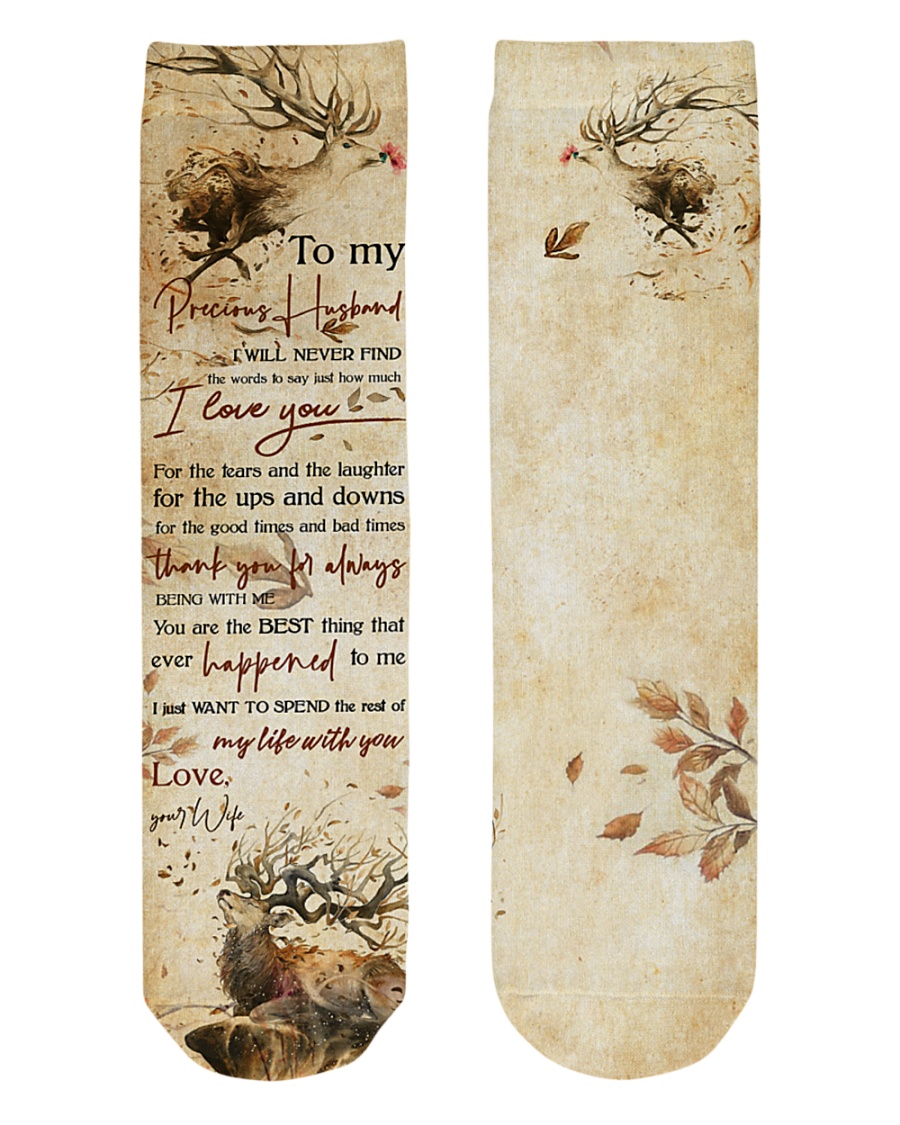 To my
Precious Husband
I WILL NEVER FIND
the words to say just how much
I love you
For the tears and the laughter
for the ups and downs
for the good times and bad times
thank you for always
BEING WITH ME
You are the BEST thing that
ever happened to me
I just WANT TO SPEND the rest of
my life with you
Love,
your Wife